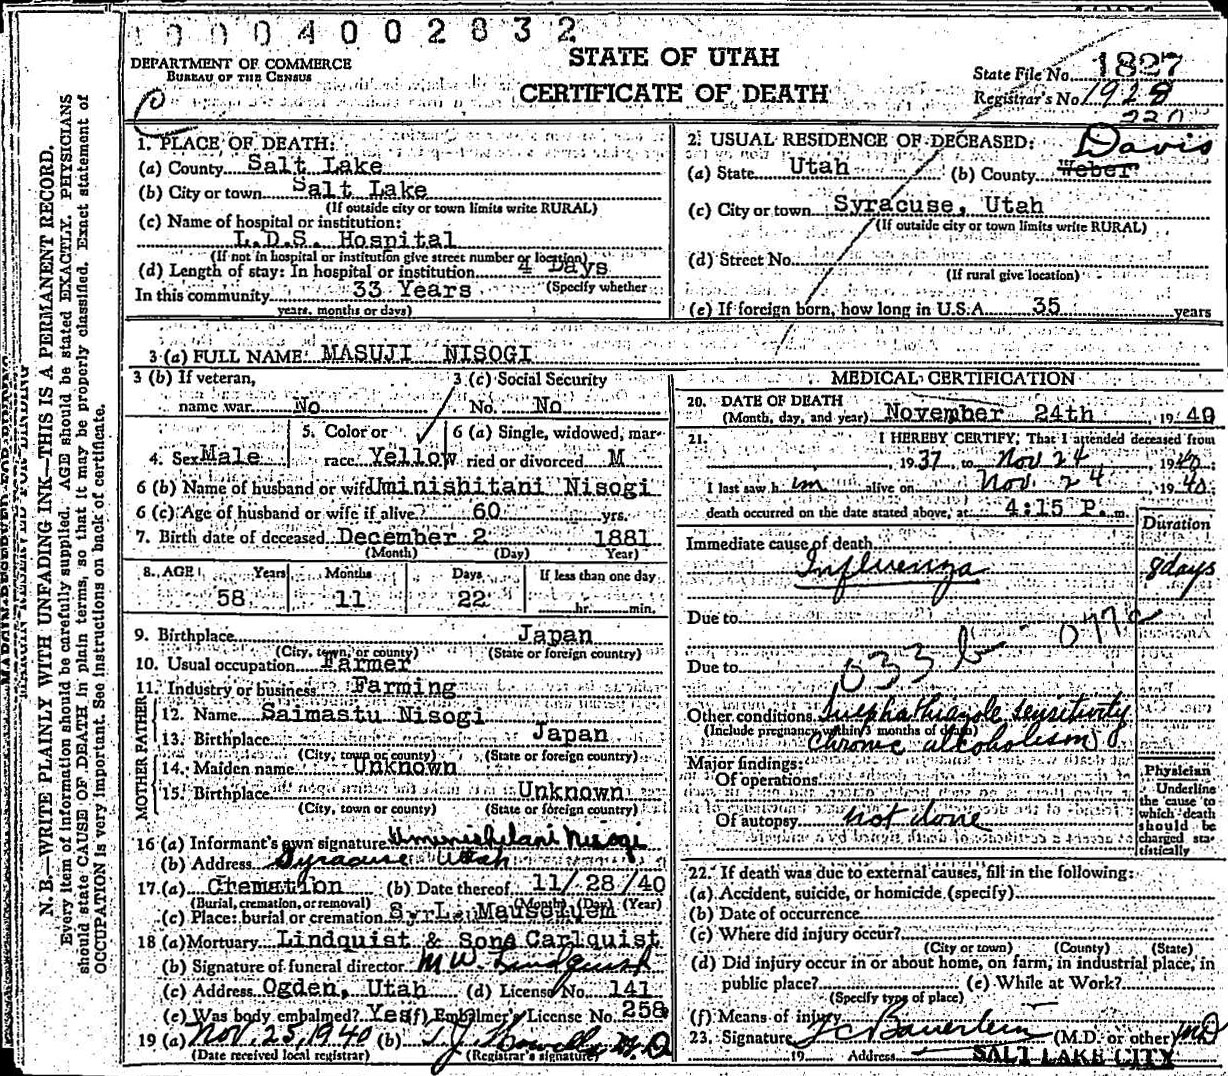 0004002832
DEPARTMENT OF COMMERCE
BUREAU OF THE CENSUS
STATE OF UTAH
CERTIFICATE OF DEATH
State File No. 1827
Registrar's No. 1928
220
1. PLACE OF DEATH:
(a) County Salt Lake
(b) City or town Salt Lake
(If outside city or town limits write RURAL)
(c) Name of hospital or institution:
L.D.S. Hospital
(If not in hospital or institution give street number or location)
(d) Length of stay: In hospital or institution 4 Days
(Specify whether
In this community 33 Years
years, months or days)
2. USUAL RESIDENCE OF DECEASED: Davis
(a) State Utah (b) County Weber
(c) City or town Syracuse, Utah
(If outside city or town limits write RURAL)
(d) Street No.
(If rural give location)
(e) If foreign born, how long in U.S.A. 35 years
3 (a) FULL NAME: MASUJI NISOGI
3 (b) If veteran, 3 (c) Social Security
name war No No. No
4. Sex Male 5. Color or race Yellow 6 (a) Single, widowed, married or divorced M
6 (b) Name of husband or wife Uminishitani Nisogi
6 (c) Age of husband or wife if alive? 60 yrs.
7. Birth date of deceased December 2 1881
(Month) (Day) Year)
8. AGE: Years Months Days If less than one day
58 11 22 hr. min.
9. Birthplace Japan
(City, town, or county) (State or foreign country)
10. Usual occupation Farmer
11. Industry or business Farming
FATHER
12. Name Saimastu Nisogi
13. Birthplace Japan
(City, town or county) (State or foreign country)
MOTHER
14. Maiden name Unknown
15. Birthplace Unknown
(City, town or county) (State or foreign country)
16 (a) Informant's own signature Uminishitani Nisogi
(b) Address Syracuse Utah
17. (a) Cremation (b) Date thereof 11/28/40
(Burial, cremation, or removal) (Month) (Day) (Year)
(c) Place: burial or cremation Syr L. Mausezuem
18 (a) Mortuary Lindquist & Sons Carlquist
(b) Signature of funeral director M W. Lindquist
(c) Address Ogden, Utah (d) License No. 141
(e) Was body embalmed? Yes (f) Embalmer's License No. 258
19 (a) Nov. 25, 1940 (b) T. J. Howells M.D
(Date received local registrar) (Registrar's signature)
MEDICAL CERTIFICATION
20. DATE OF DEATH
(Month, day, and year) November 24th 19 40
21. I HEREBY CERTIFY, That I attended deceased from
, 19 37, to Nov 24 19 40,
I last saw h im alive on Nov. 24 19 40,
death occurred on the date stated above, at 4:15 P. m.
Duration
Immediate cause of death
Influenza 8 days
Due to
033 b 077c
Due to
Other conditions Sulphathiazole sensitivity
(Include pregnancy within 3 months of death)
Chronic alcoholism
Major findings:
Of operations
Of autopsy not done
Physician
Underline the cause to which death should be charged statistically
22. If death was due to external causes, fill in the following:
(a) Accident, suicide, or homicide (specify)
(b) Date of occurrence
(c) Where did injury occur?
(City or town) (County) (State)
(d) Did injury occur in or about home, on farm, in industrial place, in
public place? (e) While at Work?
(Specify type of place)
(f) Means of injury
23. Signature F C Bauerlein (M.D. or other) MD
19 Address SALT LAKE CITY
N. B.—WRITE PLAINLY WITH UNFADING INK—THIS IS A PERMANENT RECORD.
Every item of information should be carefully supplied. AGE should be stated EXACTLY. PHYSICIANS
should state CAUSE OF DEATH in plain terms, so that it may be properly classified. Exact statement of
OCCUPATION is very important. See instructions on back of certificate.
MARGIN RESERVED FOR BINDING